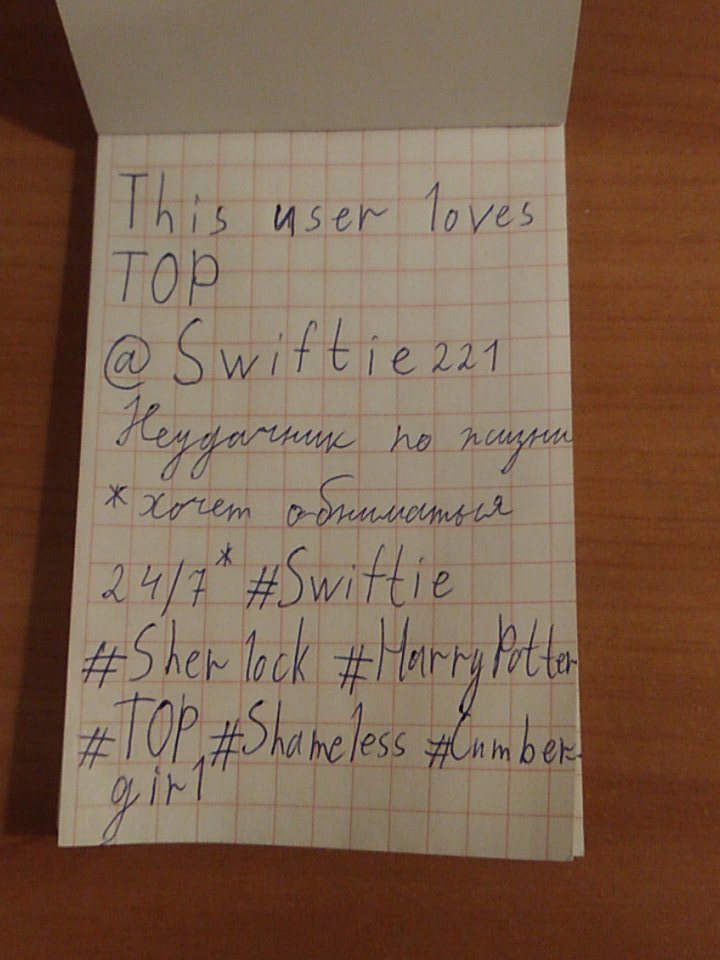 This user loves
TOP
@Swiftie221
Неудачник по жизни
*хочет обниматься
24/7* #Swiftie
#Sherlock #HarryPotter
#TOP #Shameless #Cumber-
girl